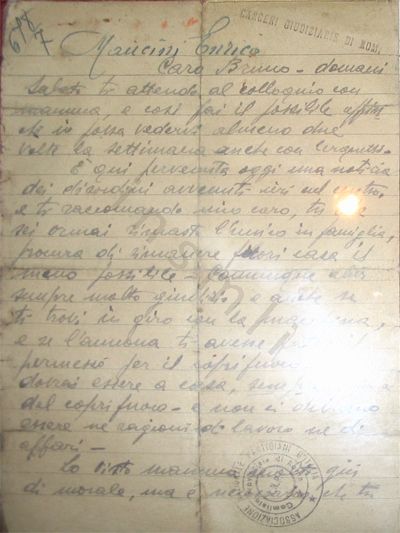 CARCERI GIUDIZIARIE DI ROMA
6i6
7
Mancini Enrico
Caro Bruno - domani
sabato ti attendo al colloquio con
mamma, e così fai il possibile affin
che io possa vedervi almeno due
volte la settimana anche con
È qui pervenuta oggi una notizia
dei disordini avvenuti ieri nel centro
e ti raccomando mio caro, tu che
sei ormai rimasto l'unico in famiglia,
procura di rimanere fuori casa il
meno possibile - Comunque abbi
sempre molto giudizio e anche se
ti trovi in giro con la macchina,
e se l'annona ti avesse
permesso per il coprifuoco
dovrai essere a casa, sempre prima
del coprifuoco - e non ci debbono
essere nè ragioni di lavoro nè di
affari -
Ho visto mamma giù
di morale, ma è necessario che tu
ASSOCIAZIONE NAZIONALE PARTIGIANI D'ITALIA
Comitato